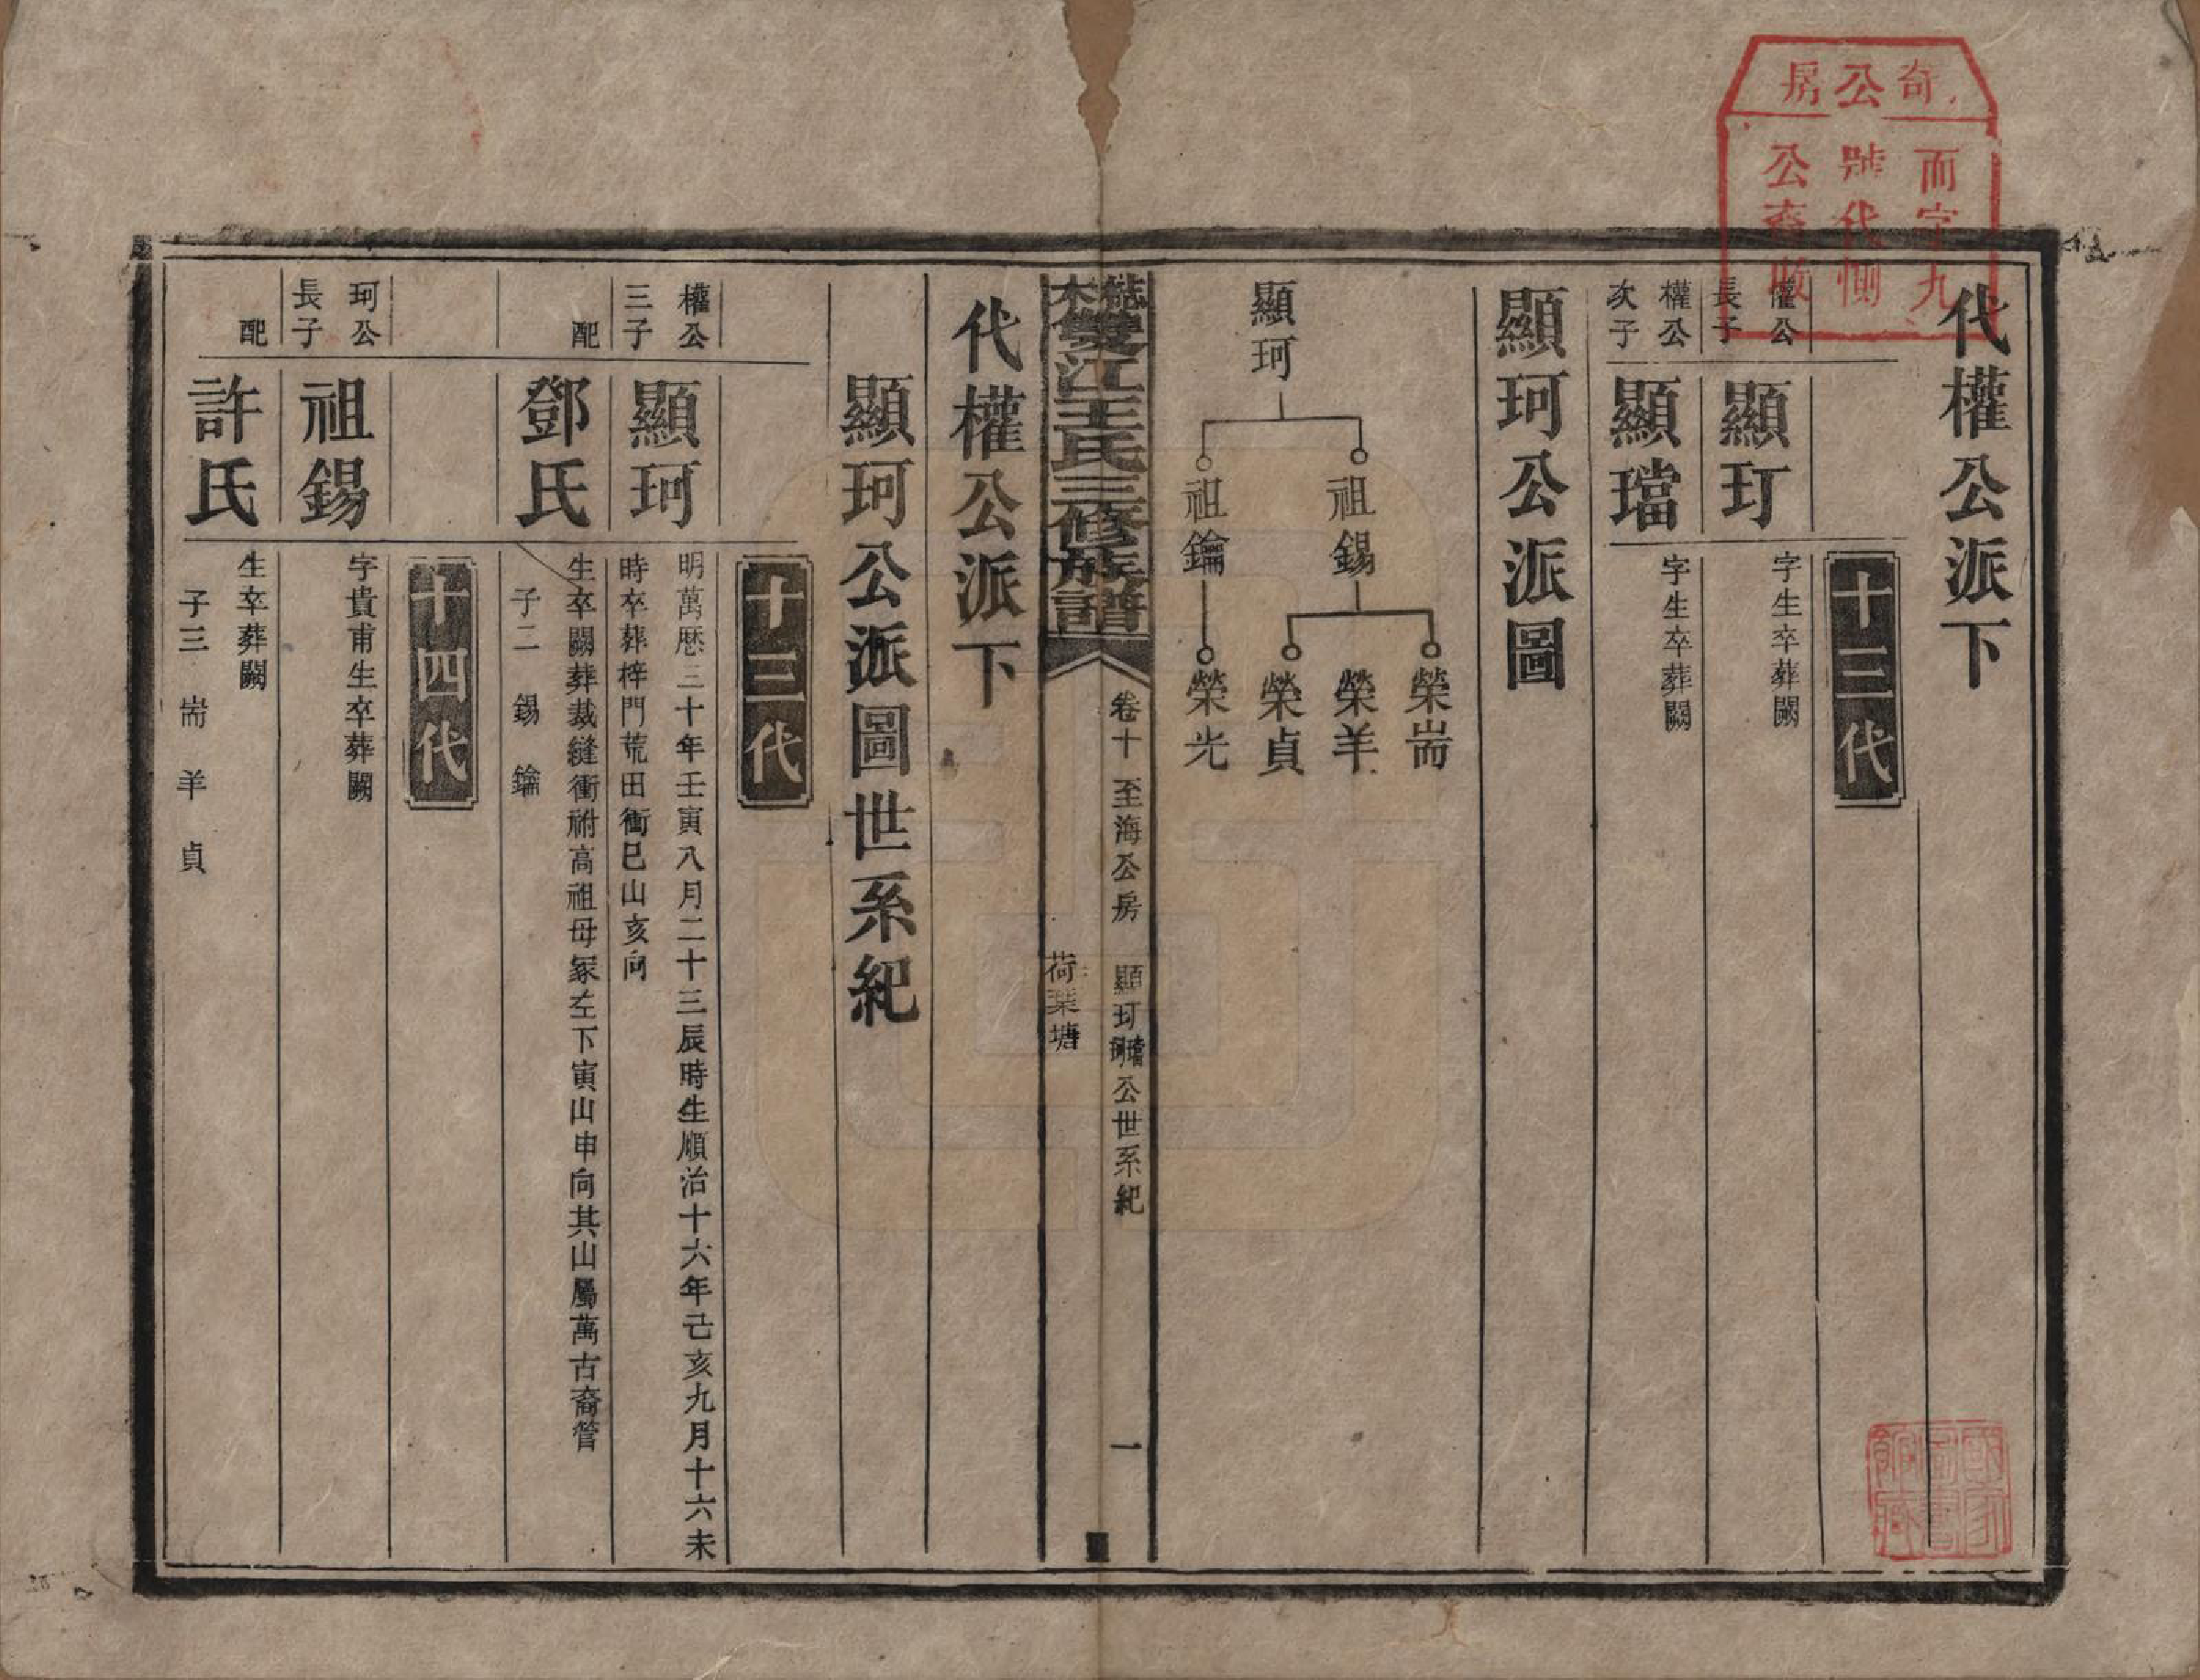 奇公房
而字九
號代惻
公裔收
代權公派下
十三代
權公長子
顯玎
字生卒葬闕
權公次子
顯璫
字生卒葬闕
顯珂公派圖
顯珂
祖錫
祖鑰
榮耑
榮羊
榮貞
榮光
雙江王氏三修族譜
卷十
至海公房
顯玎璫珂公世系紀
一
荷葉塘
代權公派下
顯珂公派圖世系紀
十三代
權公三子
顯珂
明萬厯三十年壬寅八月二十三辰時生順治十六年己亥九月十六未
時卒葬梓門荒田衝巳山亥向
配
鄧氏
生卒闕葬裁縫衝祔高祖母冢左下寅山申向其山屬萬古裔管
子二 錫 鑰
十四代
珂公長子
祖錫
字貴甫生卒葬闕
配
許氏
生卒葬闕
子三 耑 羊 貞